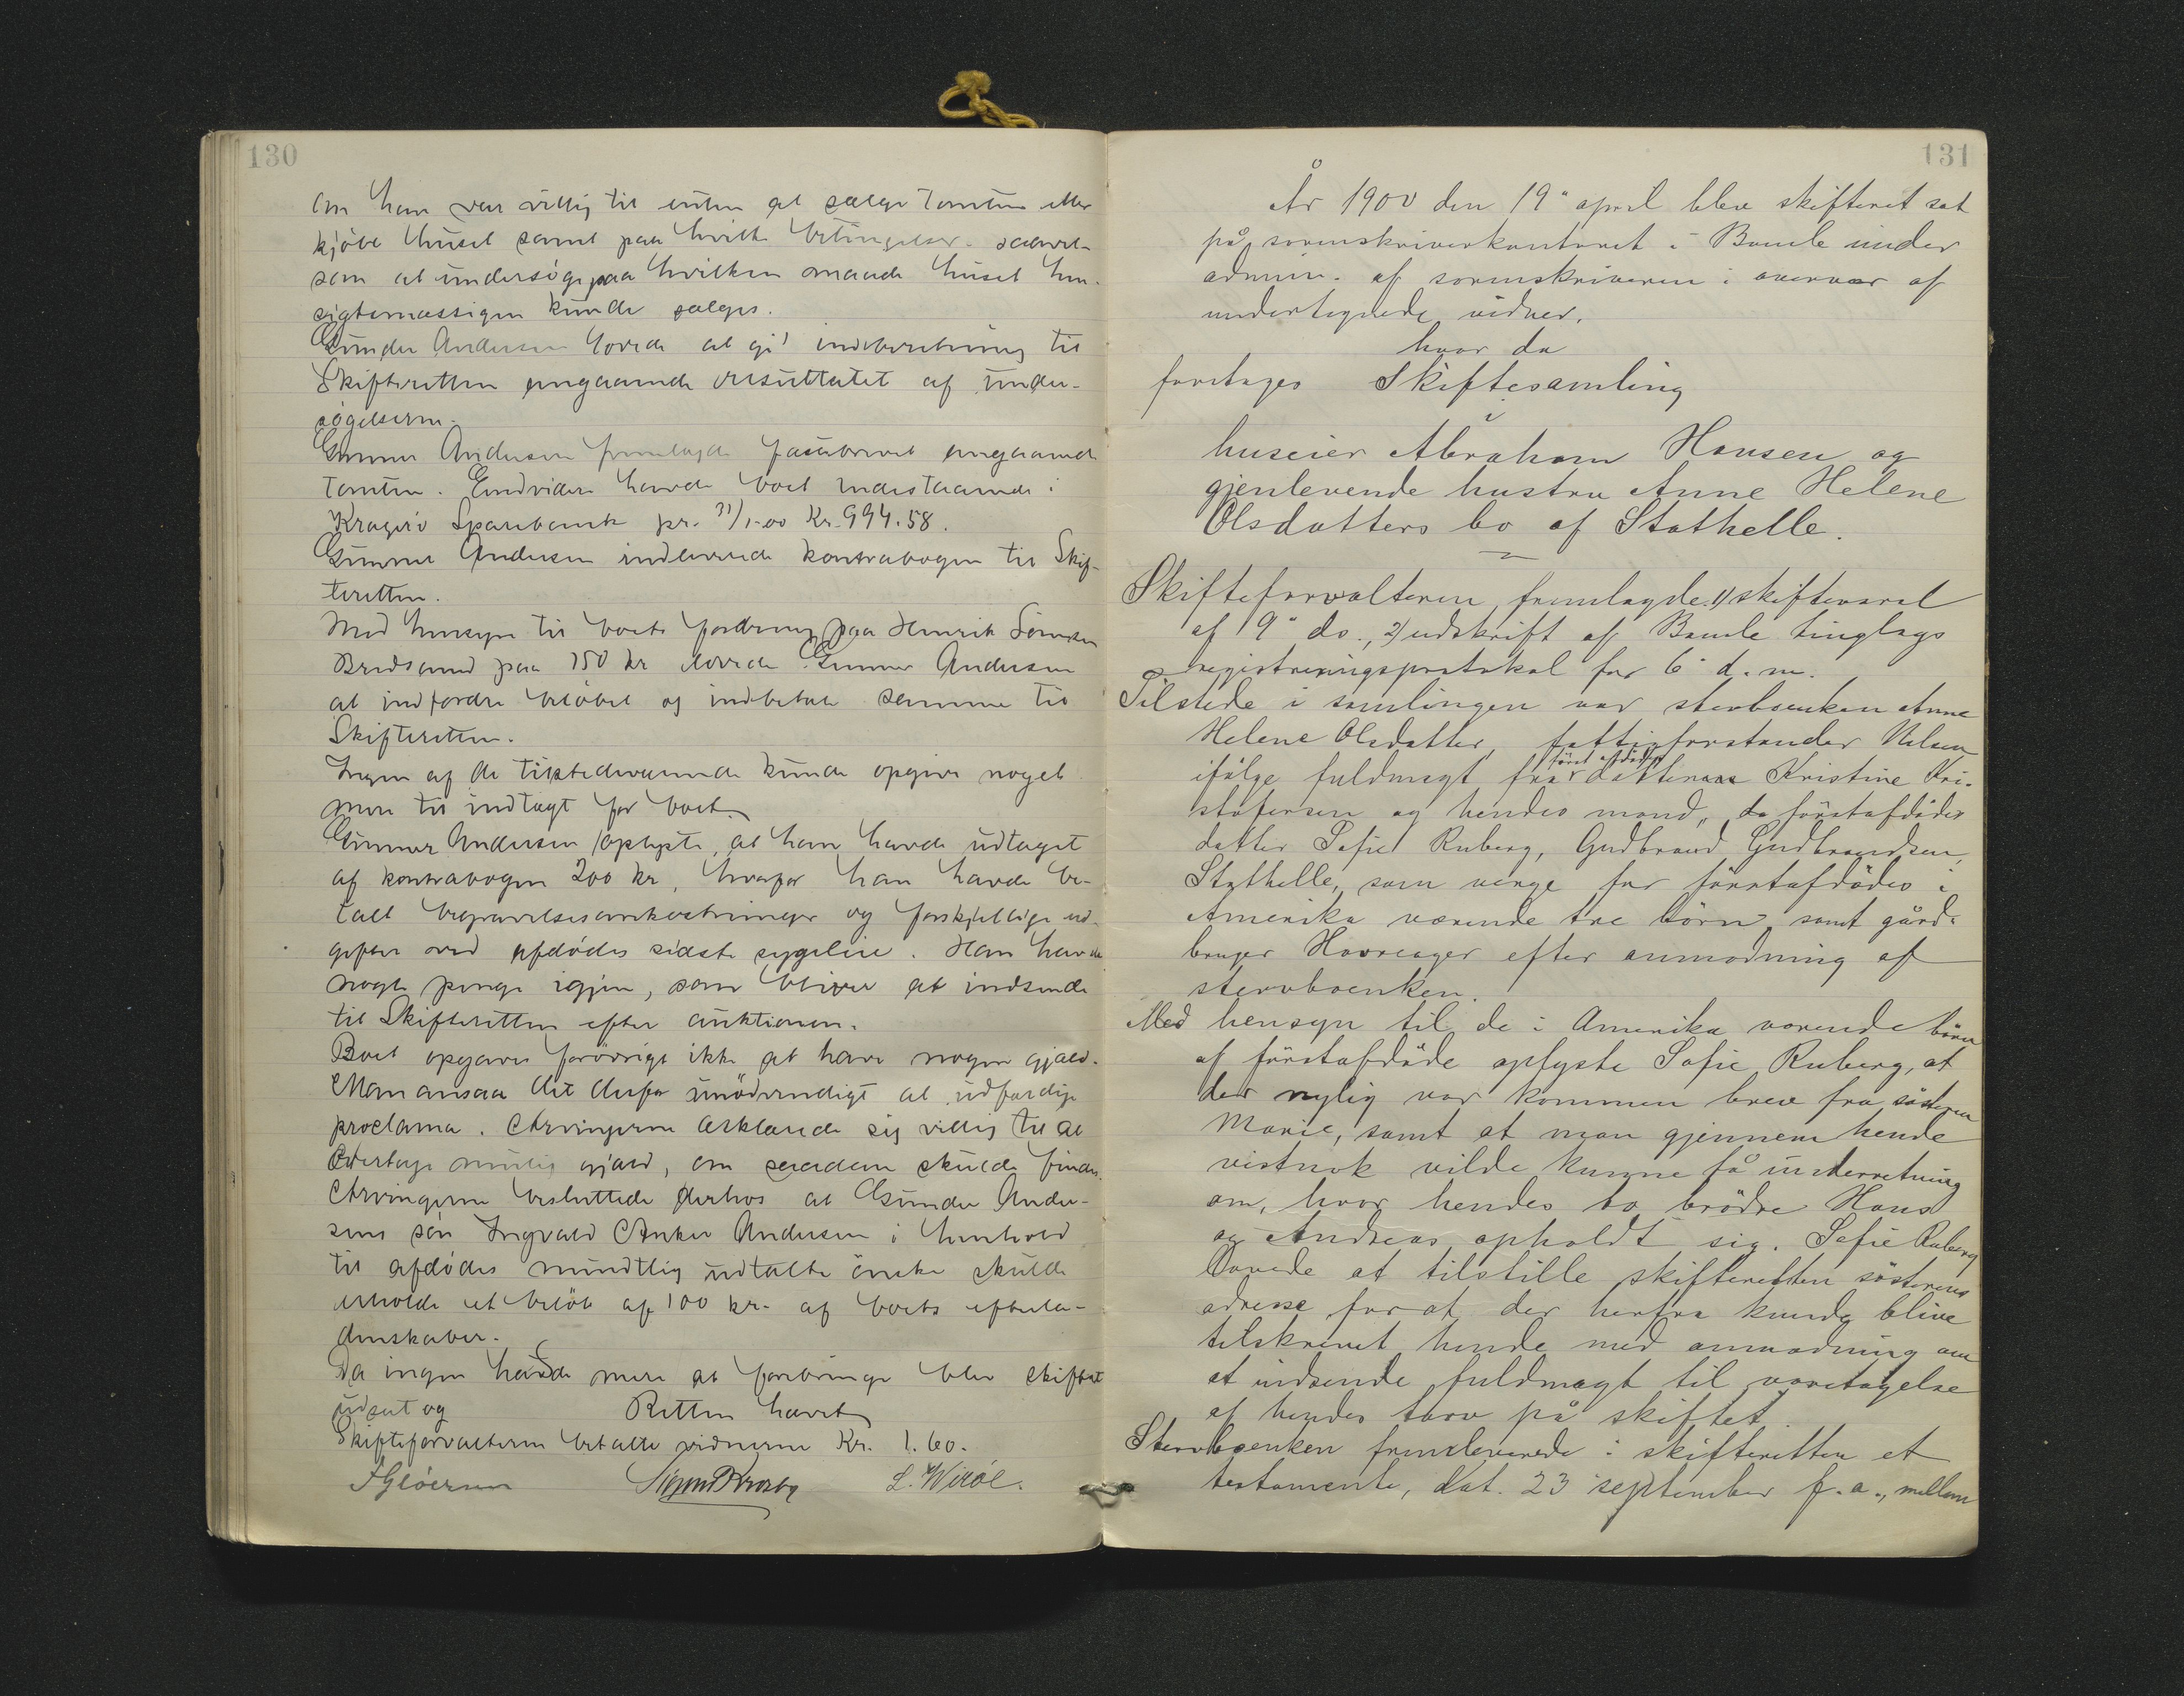 130
om han var villig til enten at sælge tomten eller
kjöbe huset samt paa hvilke betingelser. saavel-
som at undersöge paa hvilken maade huset hen-
sigtsmæssigen kunde sælges.
Gunder Andersen lovede at gi' indberetning til
Skifteretten angaaende resultatet af under-
søgelserne.
Gunner Andersen fremlagde panteb angaaende
tomten. Endvidere havde boet indestaaende i
Kragerö Sparebank pr. 31/1-00 Kr. 994.58.
Gunner Andersen indleverede kontrabogen til Skif-
teretten.
Med hensyn til boets fordring paa Henrik Sörensen
Bredsand paa 150 kr lovede Gunner Andersen
at indfordre belöbet og indbetale samme til
Skifteretten.
Ingen af de tilstedeværende kunde opgive noget
mere til indtægt for boet.
Gunner Andersen oplyste, at han havde udtaget
af kontrabogen 200 kr, hvorfor han havde be-
talt begravelsesomkostninger og forskjellige ud-
gifter ved afdødes sidste sygeleie. Han havde
nogle penge igjen, som bliver at indsende
til Skifteretten efter auktionen.
Boet opgaves forövrigt ikke at have nogen gjæld.
Man ansaa det derfor unödvendigt at udfærdige
proclama. Arvingerne erklærede sig villig til at
overtage mulig gjæld, om saadan skulde findes.
Arvingerne besluttede derhos at Gunder Ander-
sens sön Ingvald Anker Andersen i henhold
til afdödes mundtlig udtalte önske skulde
erholde et belöb af 100 kr. af boets efterla-
denskaber.
Da ingen havde mere at forebringe blev skiftet
udsat og Retten hævet
Skifteforvalteren betalte vidnerne Kr. 1.60.
L. Wiröe.
131
År 1900 den 19" april blev skifteret sat
på sorenskriverkontoret i Bamle under
admin. af sorenskriveren i overvær af
undertegnede vidner,
hvor da
foretoges Skiftesamling
i
huseier Abraham Hansen og
gjenlevende hustru Anne Helene
Olsdatters bo af Stathelle.
Skifteforvalteren fremlagde 1) skiftevarsel
af 9" ds., 2) udskrift af Bamle tinglags
registreringsprotokol for 6" d. m.
Tilstede i samlingen var stervboenken Anne
Helene Olsdatter, fattigforstander Nilsen
först afdödes
ifölge fuldmagt fra datteren Kristine Kri-
stofersen og hendes mand, do förstafdödes
datter Sofie Ruberg, Gudbrand Gudbrandsen,
Stathelle, som verge for förstafdödes i
Amerika værende tre börn samt gård-
bruger Havreager efter anmodning af
stervboenken.
Med hensyn til de i Amerika værende börn
af förstafdöde oplyste Sofie Ruberg, at
der nylig var kommen brev fra søsteren
Marie, samt at man gjennem hende
vistnok vilde kunne få underretning
om, hvor hendes to brödre Hans
og Andreas opholdt sig. Sofie Ruberg
lovede at tilstille skifteretten søsterens
adresse for at der herfra kunde blive
tilskrevet hende med anmodning om
at indsende fuldmagt til varetagelse
af hendes tarv på skiftet.
Stervboenken fremleverede i skifteretten et
testamente, dat. 23 september f. a., mellem